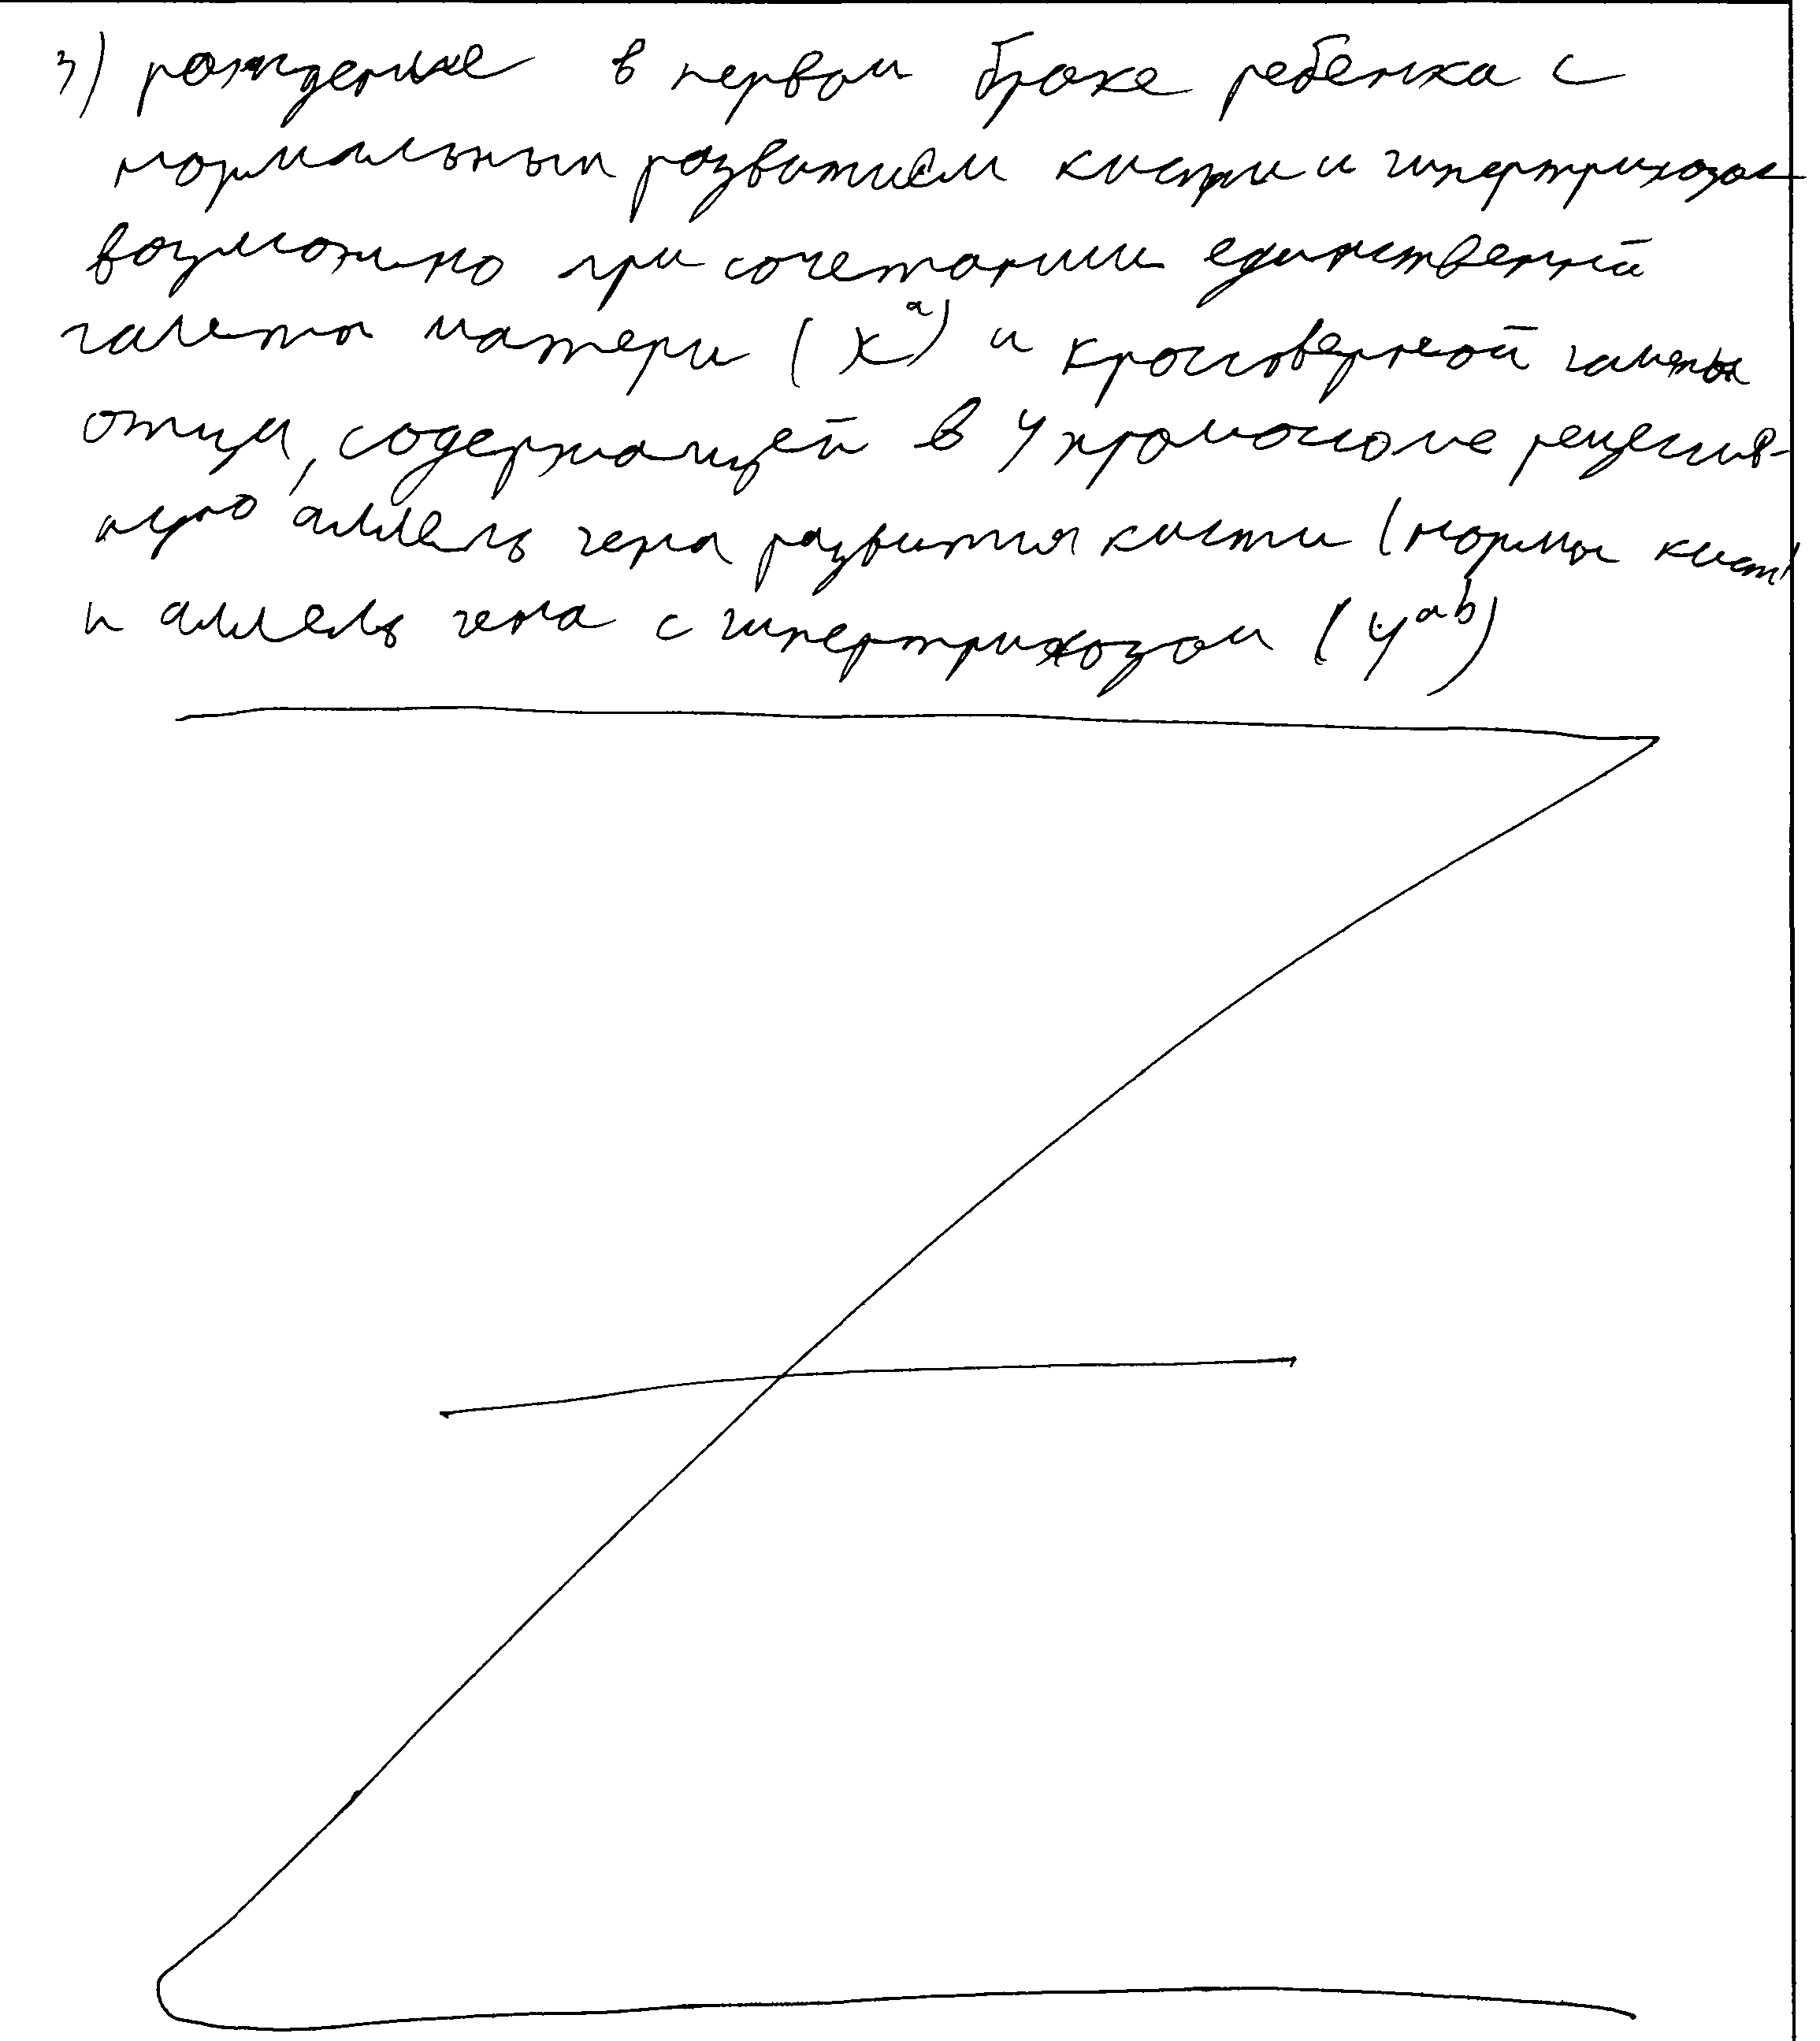 3) рождение в первом браке ребенка с
нормальным развитием кисти и гипертрихозом
возможно при сочетании единственной
гаметы матери (X^a) и кроссоверной гаметы
отца, содержащей в Y хромосоме рецессив-
ную аллель гена развития кисти (нормы кисти
и аллель гена с гипертрихозом (Y^ab)